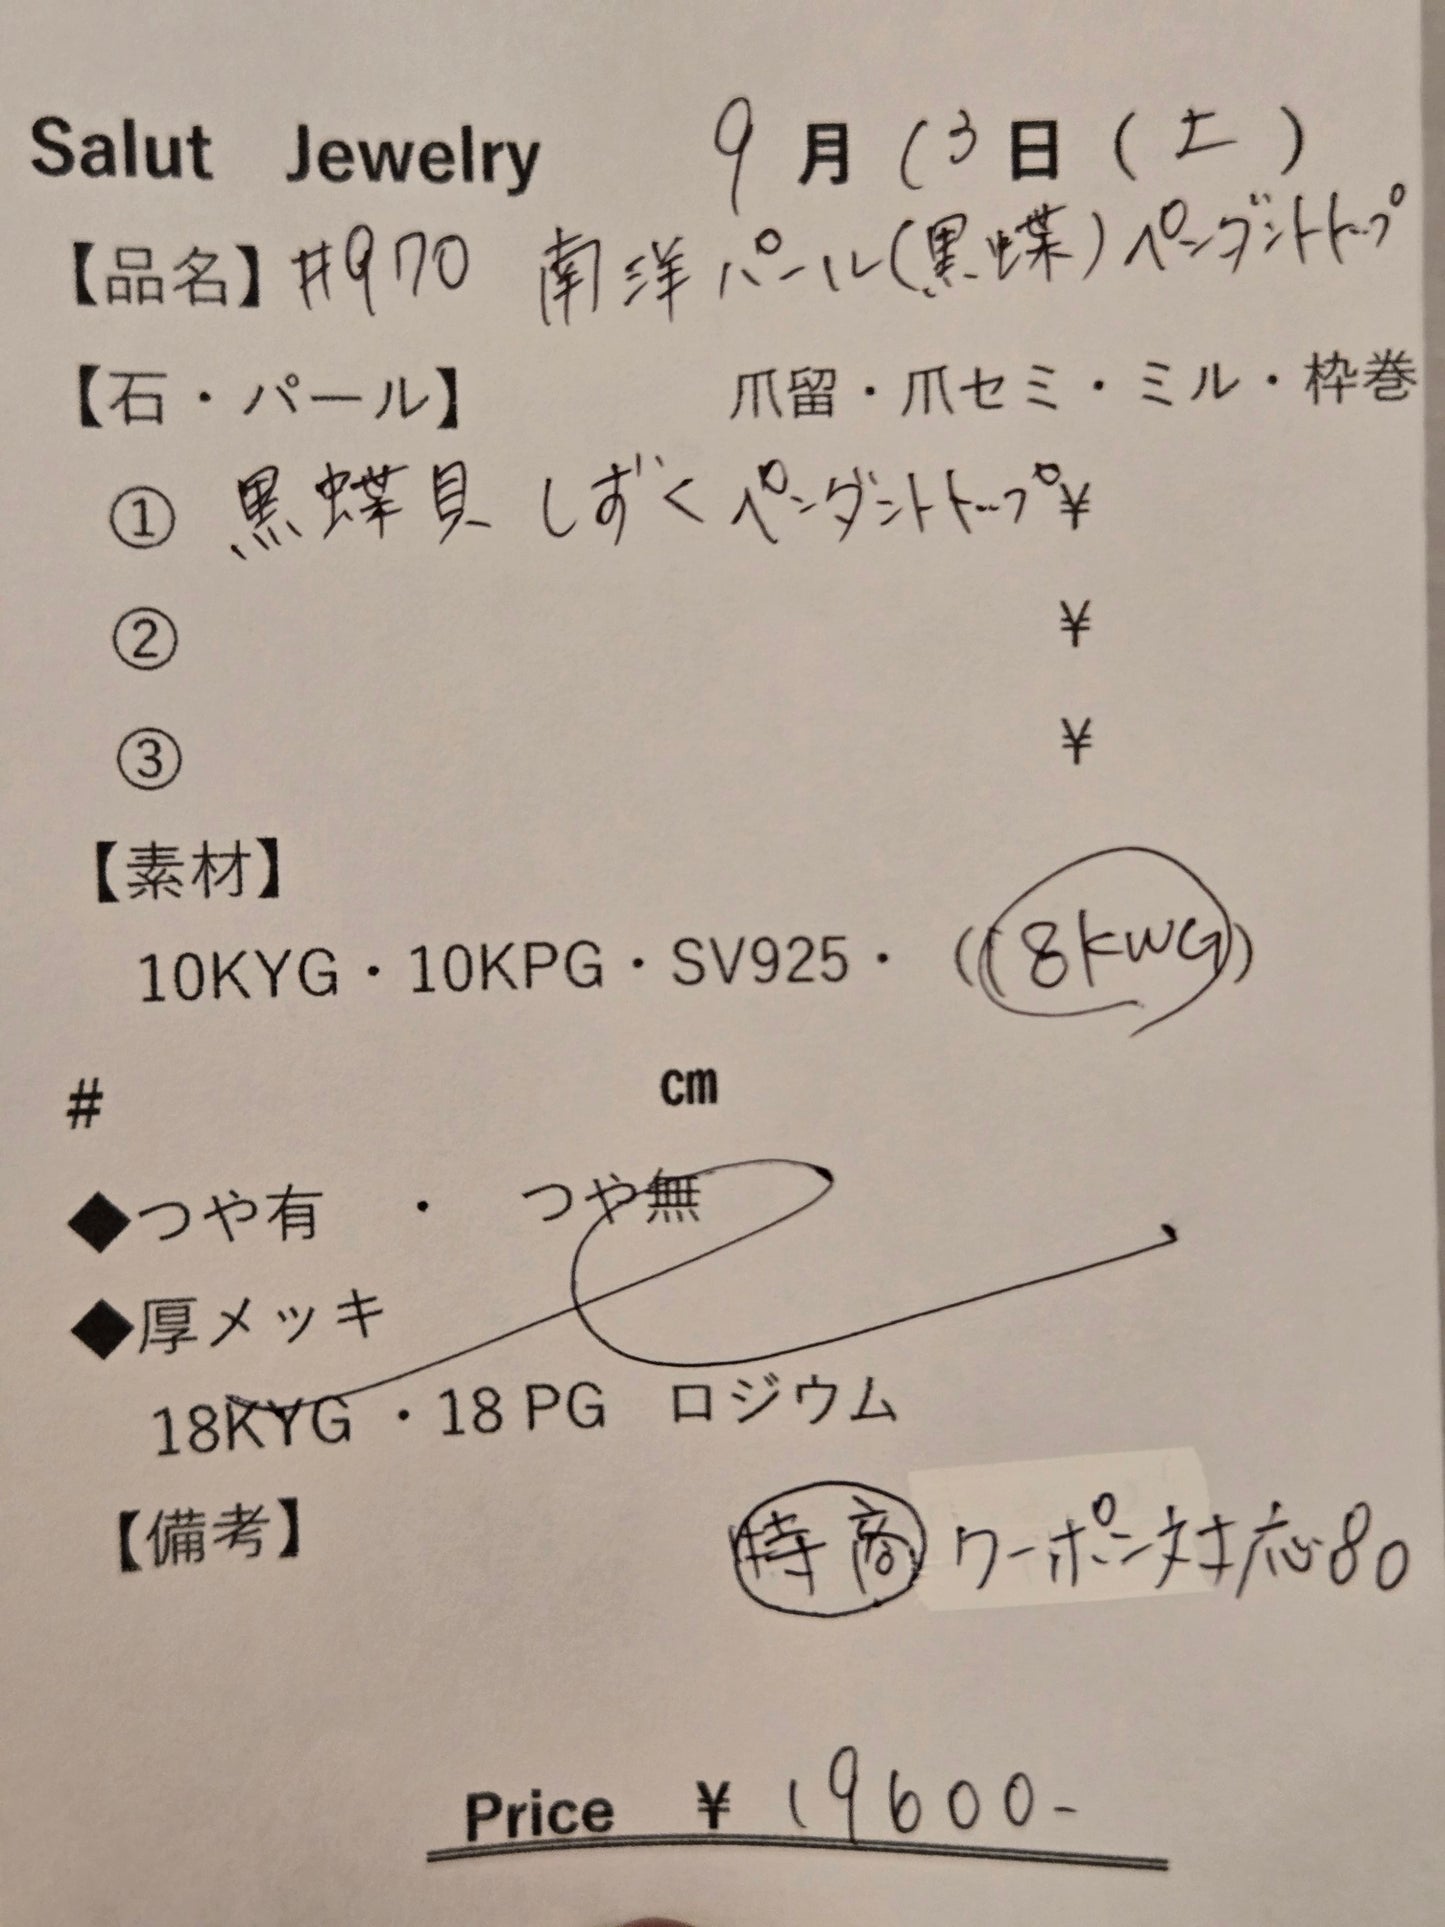 Salut Jewelry 9月13日(土)
【品名】#970 南洋パール(黒蝶)ペンダントトップ
【石・パール】 爪留・爪セミ・ミル・枠巻
① 黒蝶貝 しずくペンダントトップ¥
② ¥
③ ¥
【素材】
10KYG・10KPG・SV925・(18KWG)
# cm
◆つや有 ・ つや無
◆厚メッキ
18KYG ・18 PG ロジウム
【備考】 特商 クーポン対応80
Price ¥ 19600-